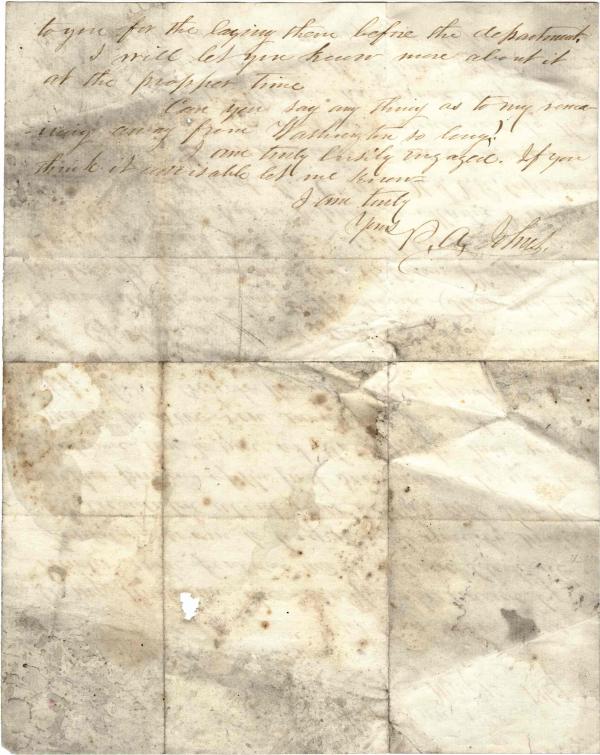 to you for the laying them before the department.
I will let you know more about it
at the propper time
Can you say any thing as to my rema-
ning away from Washington so long?
I am truly busily engaged. If you
think it advisable let me know=
I am truly
Yours
R. A.